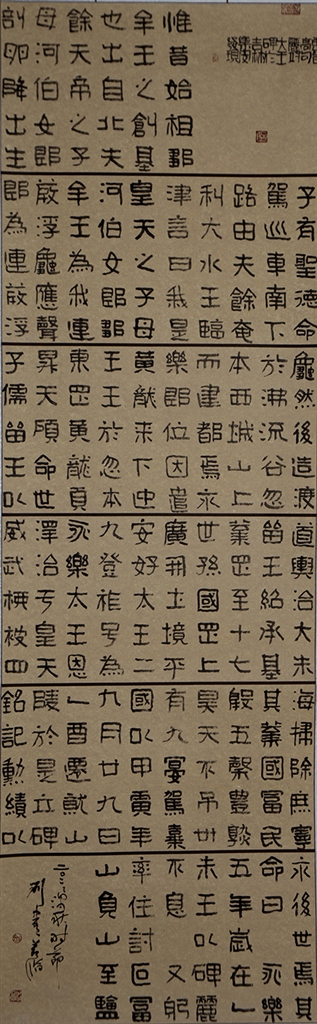 惟昔始祖鄒
牟王之創基
也出自北夫
餘天帝之子
母河伯女郎
剖卵降出生
子有聖德命
駕巡車南下
路由夫餘奄
利大水王臨
津言曰我是
皇天之子母
河伯女郎鄒
牟王為我連
葭浮龜應聲
即為連葭浮
龜然後造渡
於沸流谷忽
本西城山上
而建都焉永
樂即位因遣
黃龍來下迎
王王於忽本
東罡黃龍頁
昇天碩命世
子儒留王以
道輿治大朱
留王紹承基
業罡至十七
世孫國罡上
廣開土境平
安好太王二
九登祚号為
永樂太王恩
澤洽于皇天
威武柳被四
海掃除庶寧
其業國富民
殷五穀豊熟
昊天不吊卅
有九宴駕棄
國以甲寅年
九月廿九日
乙酉遷就山
陵於是立碑
銘記勳績以
永後世焉其
命曰 永樂
五年歲在乙
未王以碑麗
不息 又躬
率住討叵富
山負山至鹽